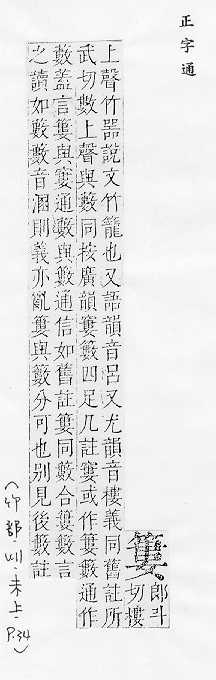 正字通
簍
郎斗
切樓
上聲竹器說文竹籠也又語韻音呂又尤韻音樓義同舊註所
武切數上聲與籔同按廣韻簍籔四足几註寠或作簍籔通作
籔蓋言簍與寠通籔與籔通信如舊註簍同籔合簍籔言
之讀如籔籔音溷則義亦亂簍與籔分可也別見後籔註
(竹部·
未上·P.34)